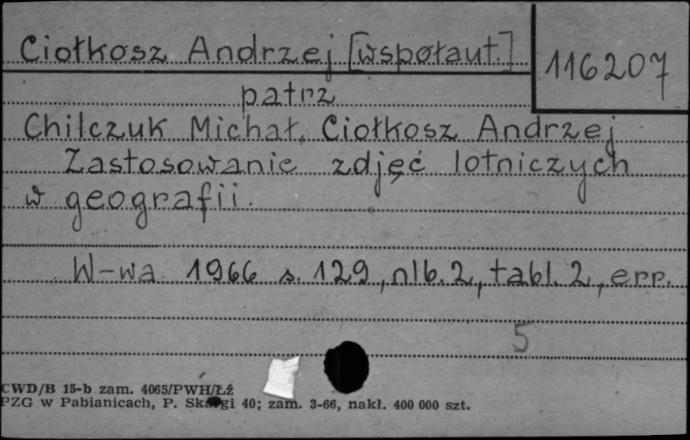 Ciołkosz Andrzej [współaut.]
116207
patrz
Chilczuk Michał, Ciołkosz Andrzej
Zastosowanie zdjęć lotniczych
w geografii.
W-wa 1966 s. 129, nlb. 2, tabl. 2, err.
5
CWD/B 15-b zam. 4065/PWH/Łź
PZG w Pabianicach, P. Skargi 40; zam. 3-66, nakł. 400 000 szt.